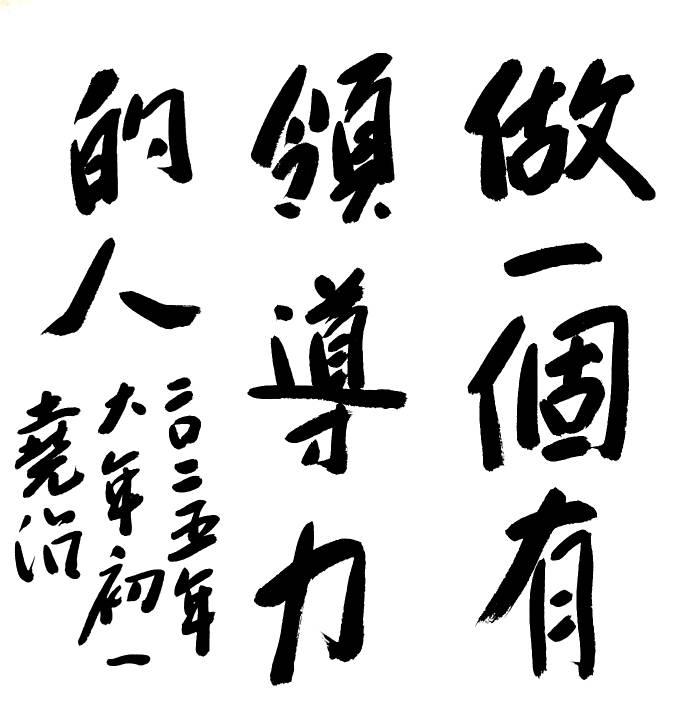 做一個有
領導力
的人
二〇二五年
大年初一
堯治